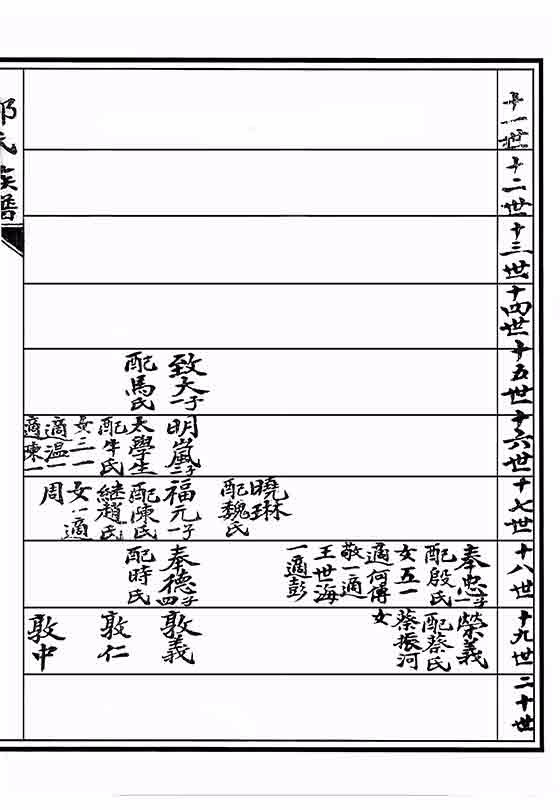 十一世
十二世
十三世
十四世
十五世
致大一子
配馬氏
十六世
明嵐二子
太學生
配牛氏
女二一
適溫一
適陳一
十七世
曉琳
配魏氏
福元一子
配陳氏
繼趙氏
女一適
周
十八世
奉忠一子
配殷氏
女五一
適何傅
敬一適
王世海
一適彭
奉德四子
配時氏
十九世
榮義
配蔡氏
蔡振河
女
敦義
敦仁
敦中
二十世
氏族譜